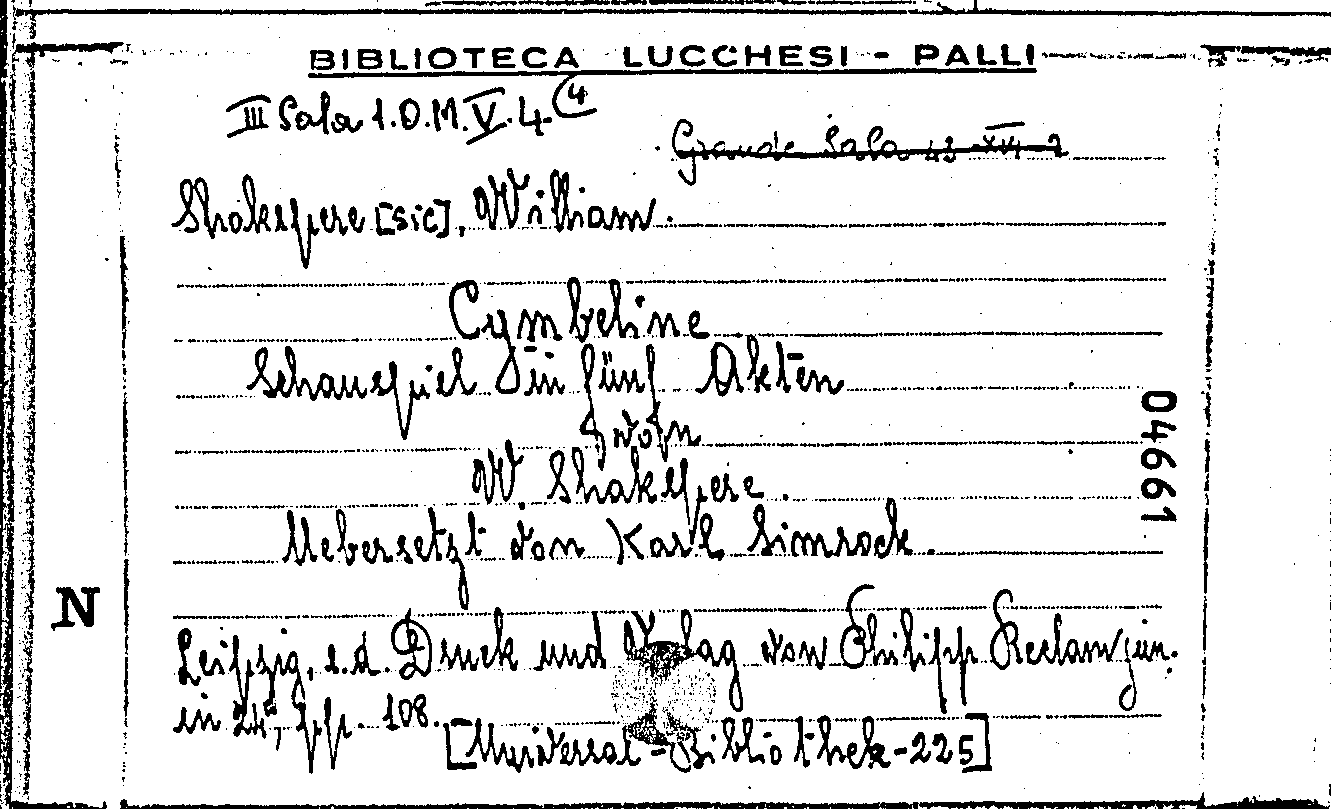 BIBLIOTECA LUCCHESI - PALLI
III Sala 1.O.M.V.4.(4
Grande Sala 42 XVI 2
Shakespere [sic], William.
Cymbeline
Schauspiel in fünf Akten
von
W. Shakespere.
Uebersetzt von Karl Simrock.
04661
N
Leipzig, s.d. Druck und Verlag von Philipp Reclam jun.
in 24°, pp. 108.
[Universal-Bibliothek-225]